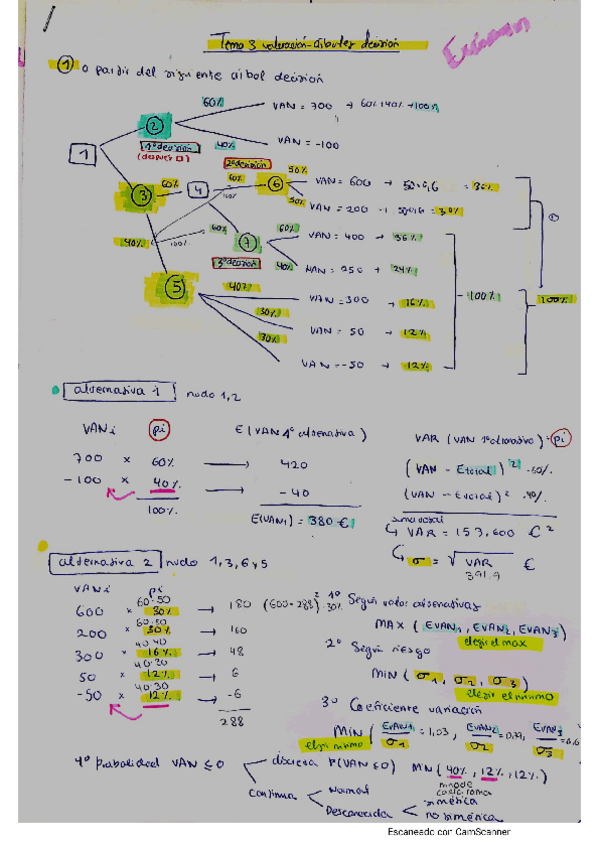 Tema 3 valoración-árboles decisión
Examen
① a partir del siguiente árbol decisión
60% VAN = 700 → 60% + 40% = 100%
②
1ª decisión 40% VAN = -100
(decreto)
1
2ª decisión 50%
③ 60% 4 60% ⑥ VAN = 600 → 50·0,6 = 30%
100% 50% VAN = 200 → 50·0,6 = 30%
40% 100% 60% ⑦ 60% VAN = 400 → 36%
3ª decisión 40% VAN = 250 → 24%
⑤ 40% VAN = 300 → 16% 100% 100%
30% VAN = 50 → 12%
30% VAN = -50 → 12%
alternativa 1 nudo 1,2
VANi pi E(VAN 1ª alternativa) VAR (VAN 1ª alternativa) = pi
700 × 60% → 420 (VAN - Etotal)² · 60%
-100 × 40% → -40 (VAN - Etotal)² · 40%
100% E(VAN1) = 380 € suma total
↳ VAR = 153,600 €²
↳ σ = √VAR €
391.9
alternativa 2 nudo 1,3,6 y 5
VANi pi
600 × 60·50 30% → 180 (600-288)² · 30%
200 × 60·50 30% → 160
300 × 40·40 16% → 48
50 × 40·30 12% → 6
-50 × 40·30 12% → -6
288
1º Según valor alternativas
MAX (EVAN1, EVAN2, EVAN3)
elegir el max
2º Según riesgo
MIN (σ1, σ2, σ3)
elegir el mínimo
3º Coeficiente variación
MIN ( EVAN1/σ1 = 1,03, EVAN2/σ2 = , EVAN3/σ3
elegir mínimo
4º probabilidad VAN ≤ 0 discreta P(VAN ≤ 0) MIN (40%, 12%, 12%)
continua Normal
Desconocida simétrica
no simétrica
Escaneado con CamScanner